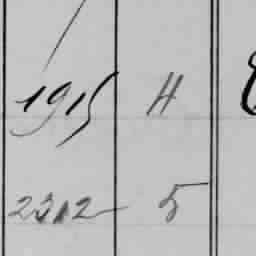 1915 H
2312 5